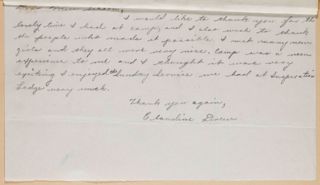 I would like to thank you for the
lovely time I had at camp, and I also wish to thank
the people who made it possible. I met many new
girls and they all were very nice. Camp was a new
experience to me and I thought it was very
exciting. I enjoyed the Sunday service we had at Inspiration
Ledge very much.
Thank you again,
Claudine